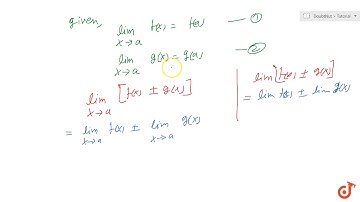 given, lim x→a f(x) = f(a) — ①
lim x→a g(x) = g(a) — ②
lim x→a [f(x) ± g(x)]
= lim x→a f(x) ± lim x→a g(x)
lim [f(x) ± g(x)]
= lim f(x) ± lim g(x)